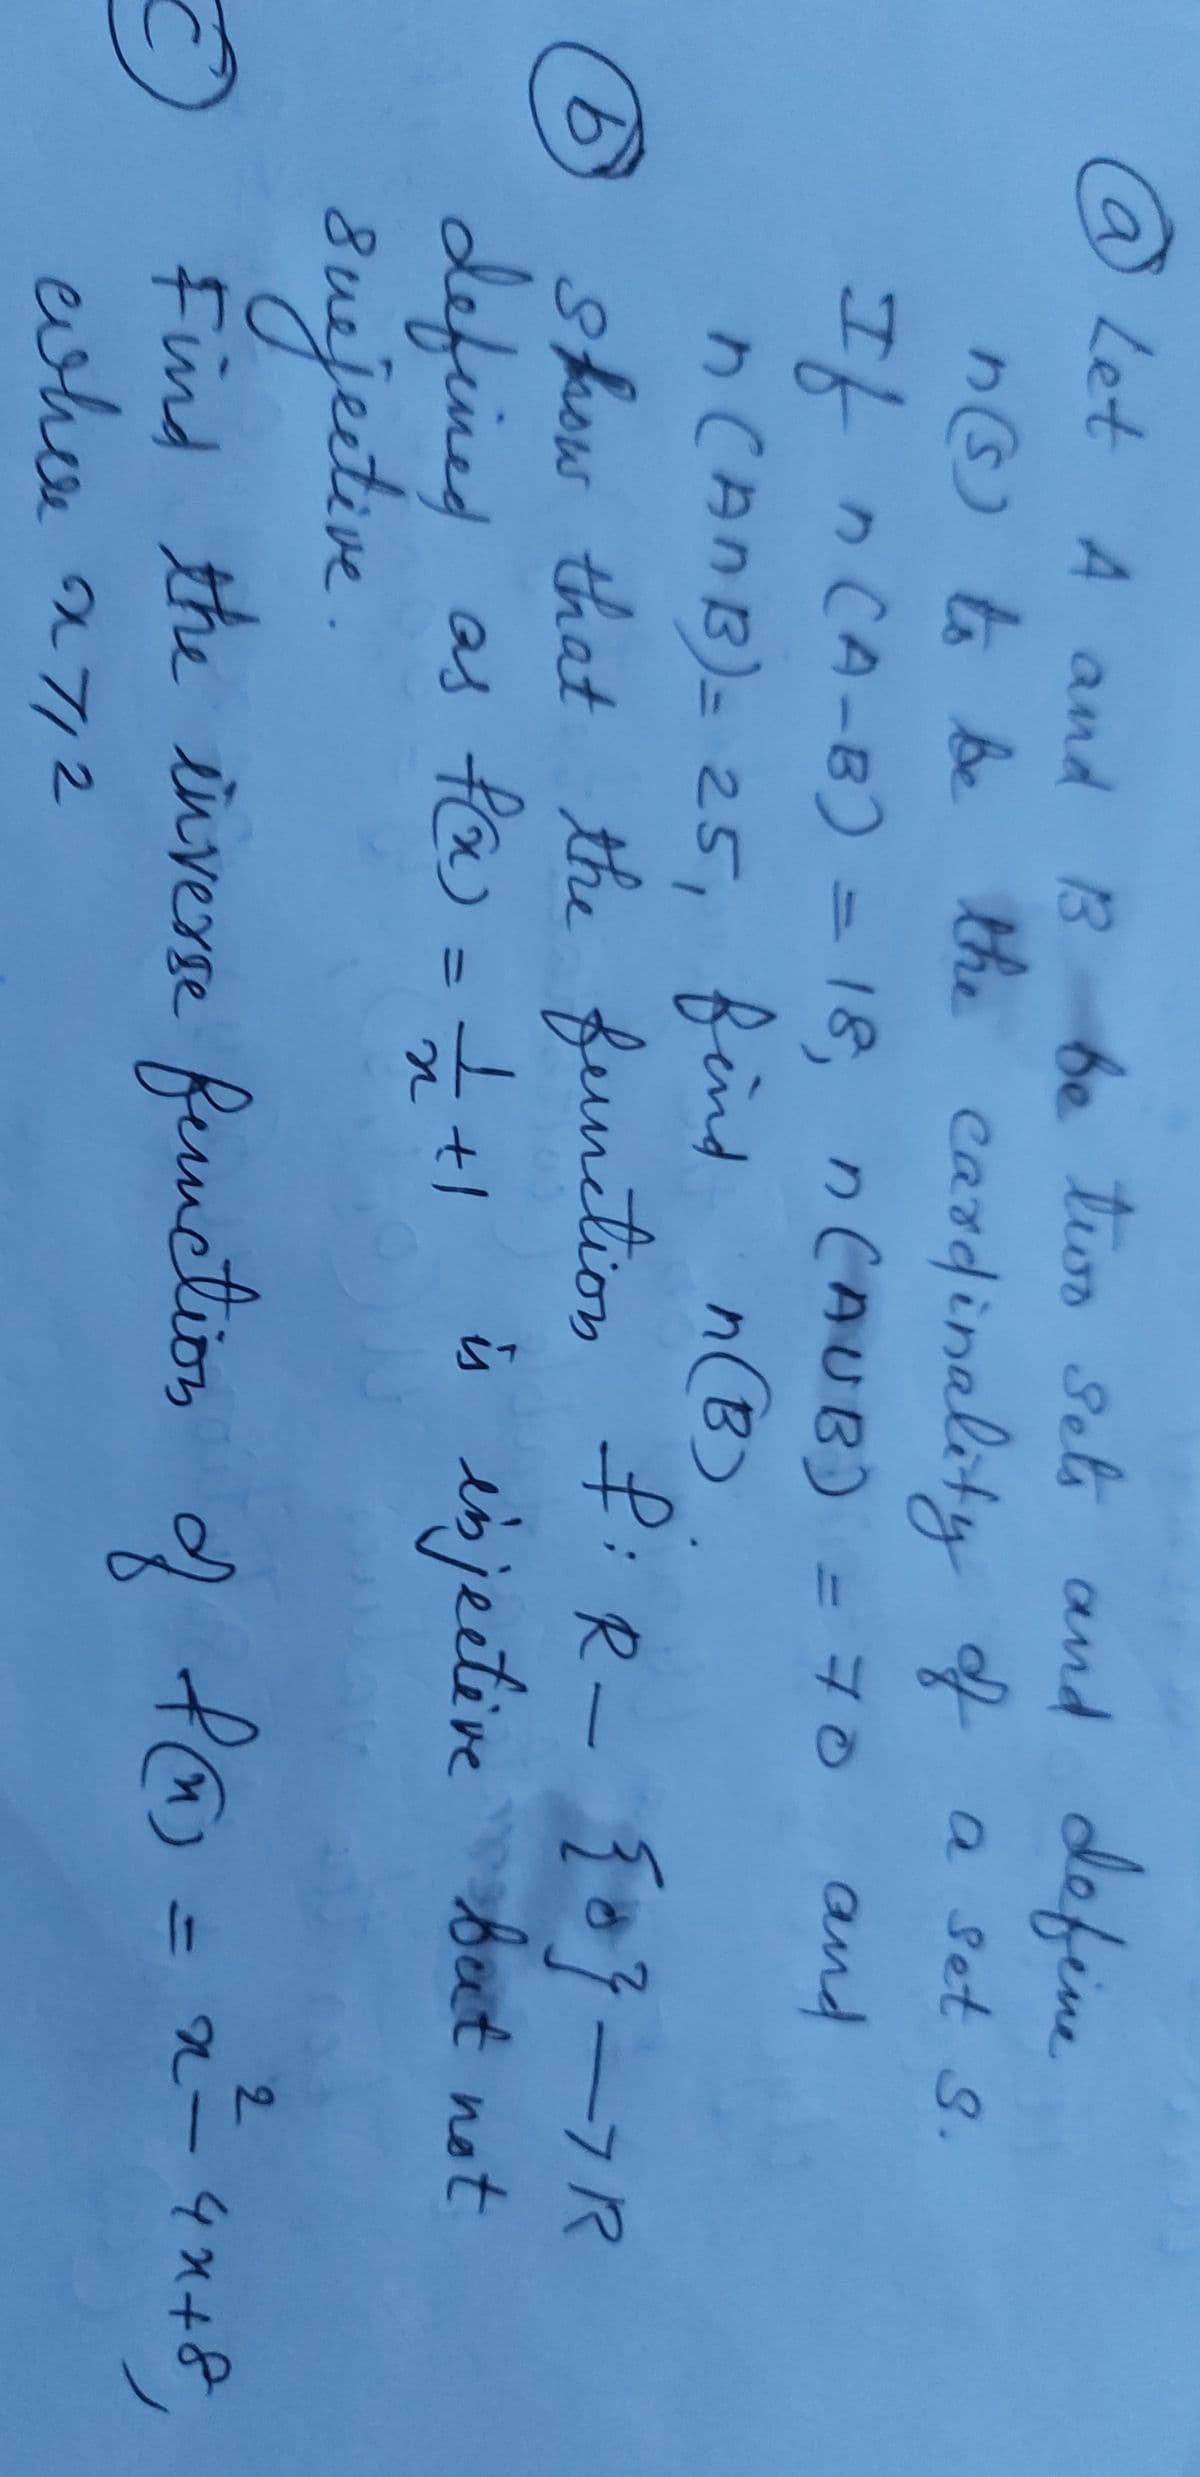 (a) Let A and B be two sets and define
n(s) to be the cardinality of a set S.
If n(A-B) = 18, n(A∪B) = 70 and
n(A∩B) = 25, find n(B)
(b) Show that the function f: R - {0} → R
defined as f(x) = 1/x + 1 is injective but not
surjective.
(c) Find the inverse function of f(x) = x² - 4x + 8,
where x ≥ 2